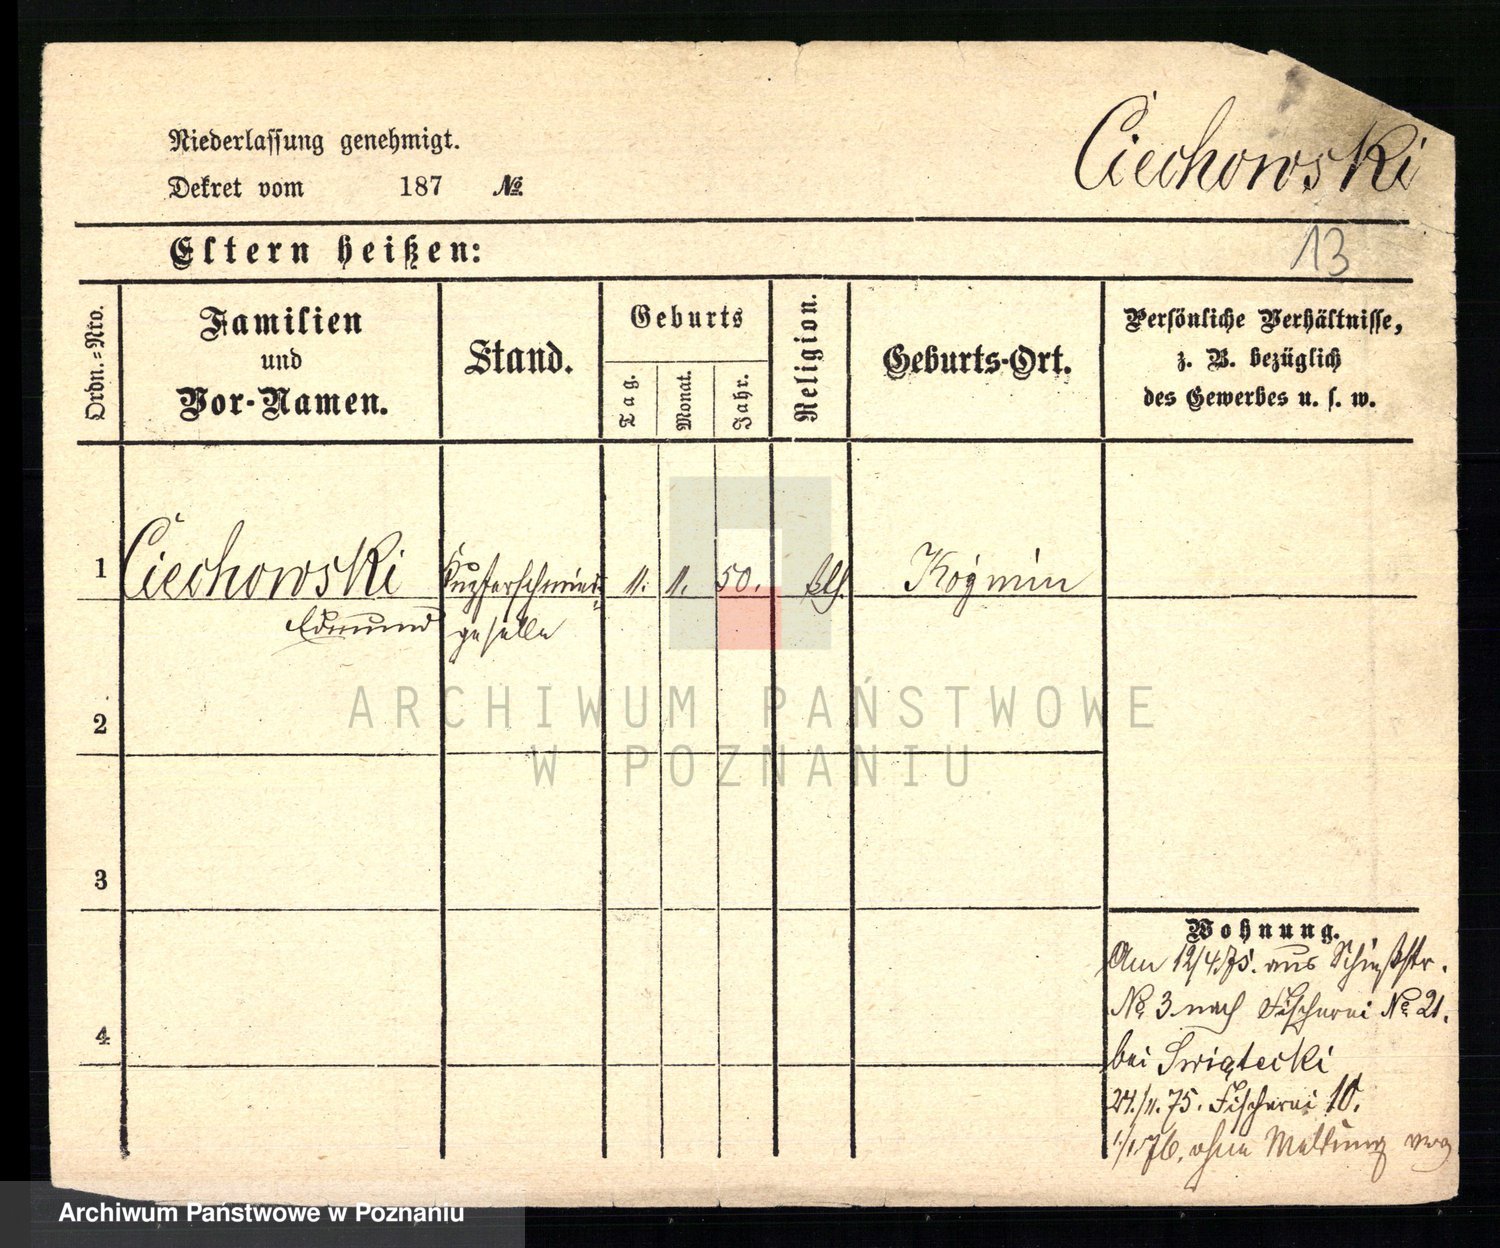 Ciechowski
Niederlassung genehmigt.
Dekret vom 187 №
Eltern heißen:
13
Ordn.=Nro.
Familien
und
Vor-Namen.
Stand.
Geburts
Tag.
Monat.
Jahr.
Religion.
Geburts-Ort.
Persönliche Verhältnisse,
z. B. bezüglich
des Gewerbes u. s. w.
1 Ciechowski Kupferschmied- 11. 1. 50. kth. Kozmin
Edmund geselle
2
3
4
Wohnung.
Am 12/4.75. aus Schießstr.
№ 3 nach Fischerei № 21.
bei Swiątecki
24./11.75. Fischerei 10.
76. ohne Meldung
ARCHIWUM PAŃSTWOWE
W POZNANIU
Archiwum Państwowe w Poznaniu